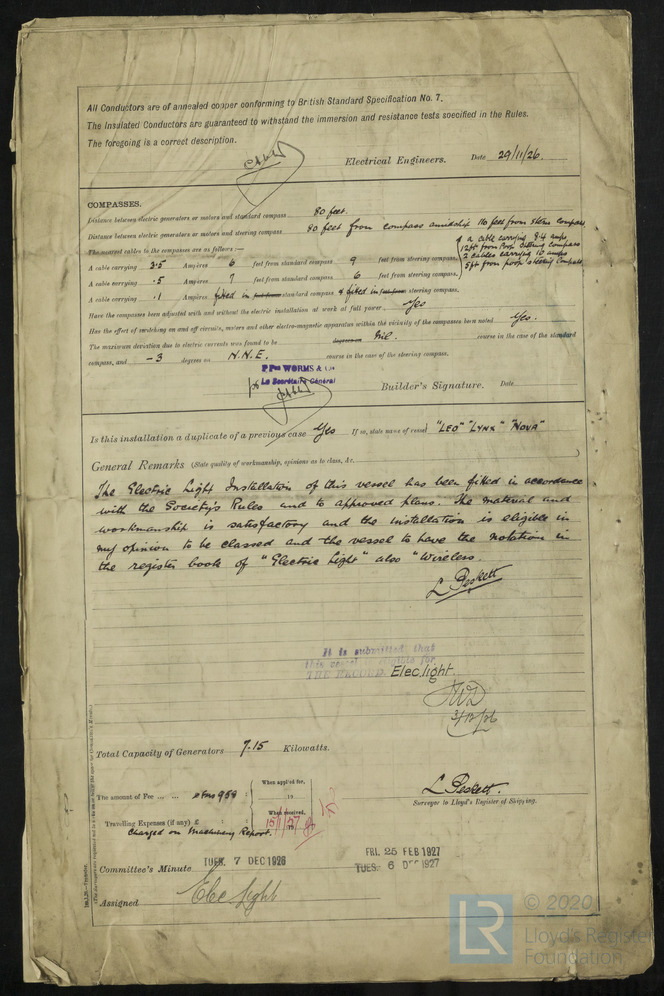 All Conductors are of annealed copper conforming to British Standard Specification No. 7.
The Insulated Conductors are guaranteed to withstand the immersion and resistance tests specified in the Rules.
The foregoing is a correct description.
Electrical Engineers. Date 29/11/26.
COMPASSES.
Distance between electric generators or motors and standard compass 80 feet.
Distance between electric generators or motors and steering compass 80 feet from compass amidship 110 feet from stern compass
The nearest cables to the compasses are as follows:—
& a cable carrying 8.4 amps
12ft from Poop steering compass
2 cables carrying 10 amps
5ft from poop steering compass
A cable carrying 3.5 Ampères 6 feet from standard compass 9 feet from steering compass.
A cable carrying .5 Ampères 7 feet from standard compass 6 feet from steering compass.
A cable carrying .1 Ampères fitted in feet from standard compass & fitted in feet from steering compass.
Have the compasses been adjusted with and without the electric installation at work at full power Yes
Has the effect of switching on and off circuits, motors and other electro-magnetic apparatus within the vicinity of the compasses been noted Yes.
The maximum deviation due to electric currents was found to be Nil. degrees on course in the case of the standard
compass, and -3 degrees on N.N.E. course in the case of the steering compass.
P Pon WORMS & Cie
Le Secrétaire Général
Builder's Signature. Date
Is this installation a duplicate of a previous case Yes If so, state name of vessel "LEO" "LYNX" "NOVA"
General Remarks (State quality of workmanship, opinions as to class, &c.
The Electric Light Installation of this vessel has been fitted in accordance
with the Society's Rules and to approved plans. The material and
workmanship is satisfactory and the installation is eligible in
my opinion to be classed and the vessel to have the notation in
the register book of "Electric Light" also "Wireless.
L Peskett
It is submitted that
this vessel is eligible for
THE RECORD. Elec.light.
3/12/26
Total Capacity of Generators 7.15 Kilowatts.
L Peskett.
Surveyor to Lloyd's Register of Shipping.
The amount of Fee ... ...
When applied for,
19
When received,
15/1/27
Travelling Expenses (if any) £
Charged on Machinery Report.
Committee's Minute TUES. 7 DEC 1926
FRI. 25 FEB 1927
TUES. 6 DEC 1927
Assigned Elec Light
LR
© 2020
Lloyd's Register
Foundation